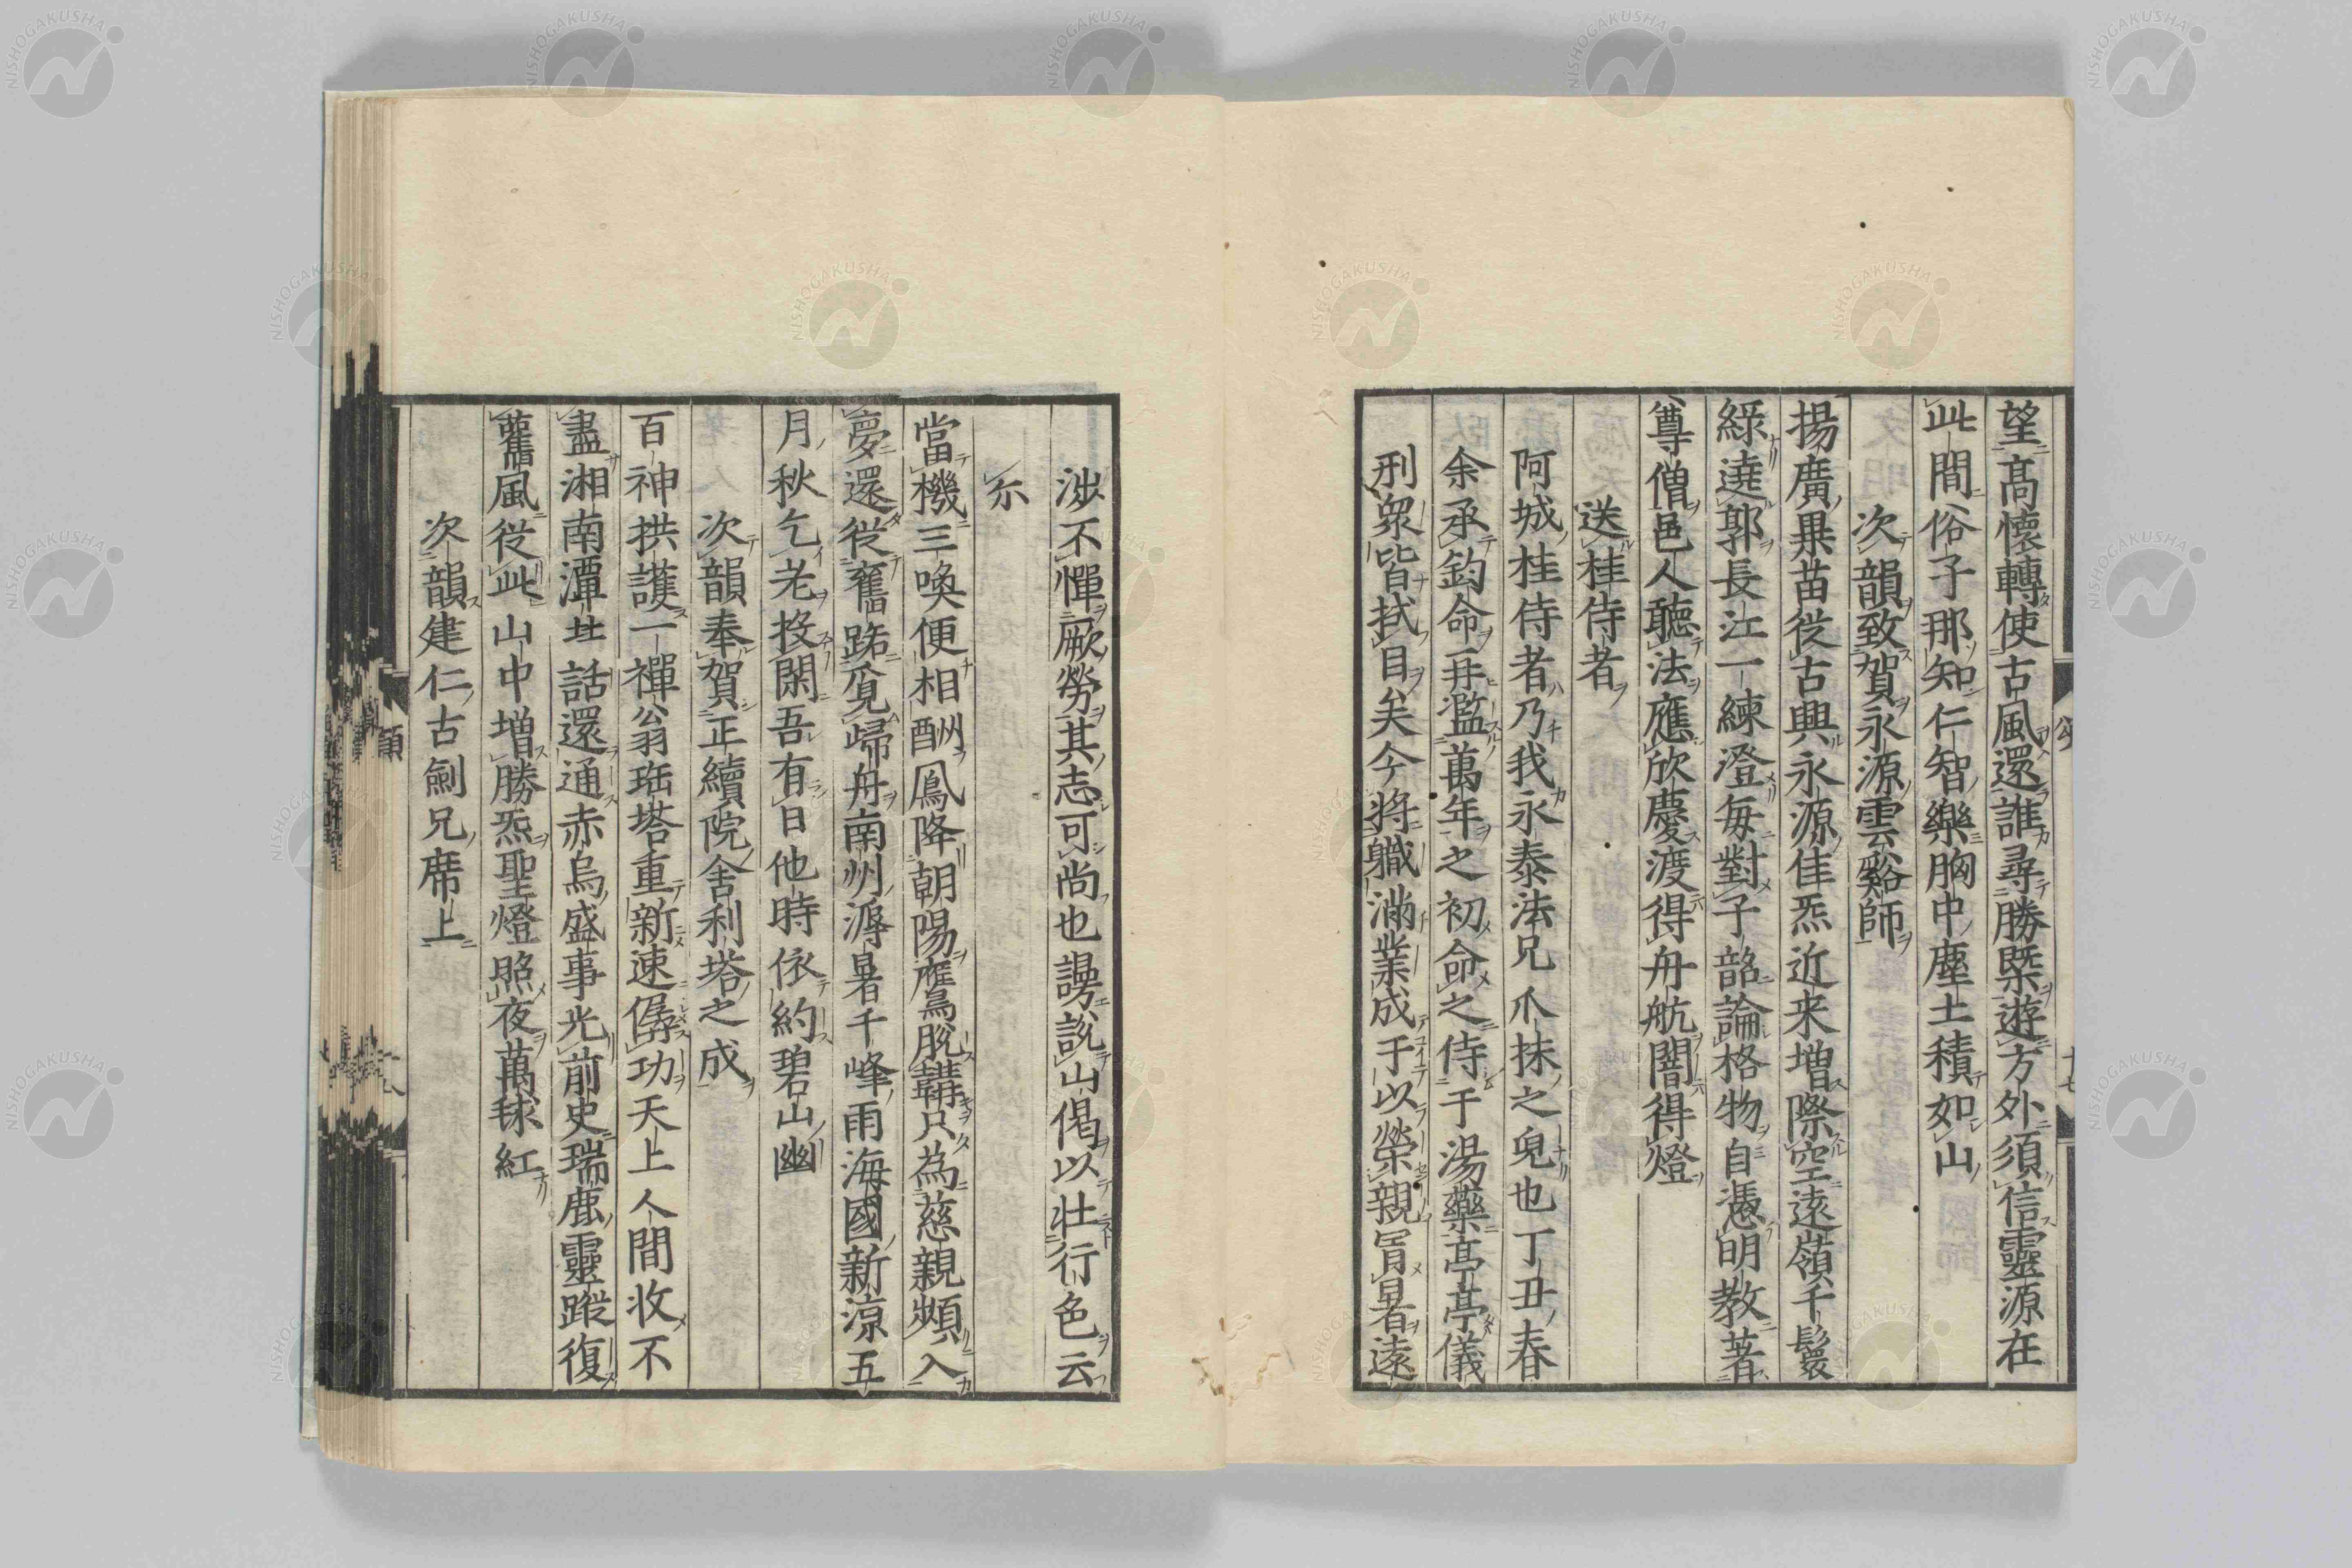 望高懷轉使古風還誰尋勝槩遊方外須信靈源在
此間俗子那知仁智樂胸中塵土積如山
次韻致賀永源雲谿師
揚廣果苗從古興永源佳炁近来增際空遠嶺千鬟
綠遶郭長江一練澄每對子韶論格物自憑明教著
尊僧邑人聽法應欣慶渡得舟航闇得燈
送桂侍者
阿城桂侍者乃我永泰法兄爪抹之皃也丁丑春
余承鈞命再濫萬年之初命之侍于湯藥亭亭儀
刑眾皆拭目矣今將職滿業成于以榮親冐暑遠
涉不憚厥勞其志可尚也謾説山偈以壯行色云
尒
當機三喚便相酬鳳降朝陽鷹脫韝只為慈親頻入
夢還從舊路覓歸舟南州溽暑千峰雨海國新涼五
月秋乞老投閑吾有日他時依約碧山幽
次韻奉賀正續院舍利塔之成
百神拱護一禪翁珤塔重新速僝功天上人間收不
盡湘南潭北話還通赤烏盛事光前史瑞鹿靈蹤復
舊風從此山中増勝炁聖燈照夜萬毬紅
次韻建仁古劍兄席上
NISHOGAKUSHA